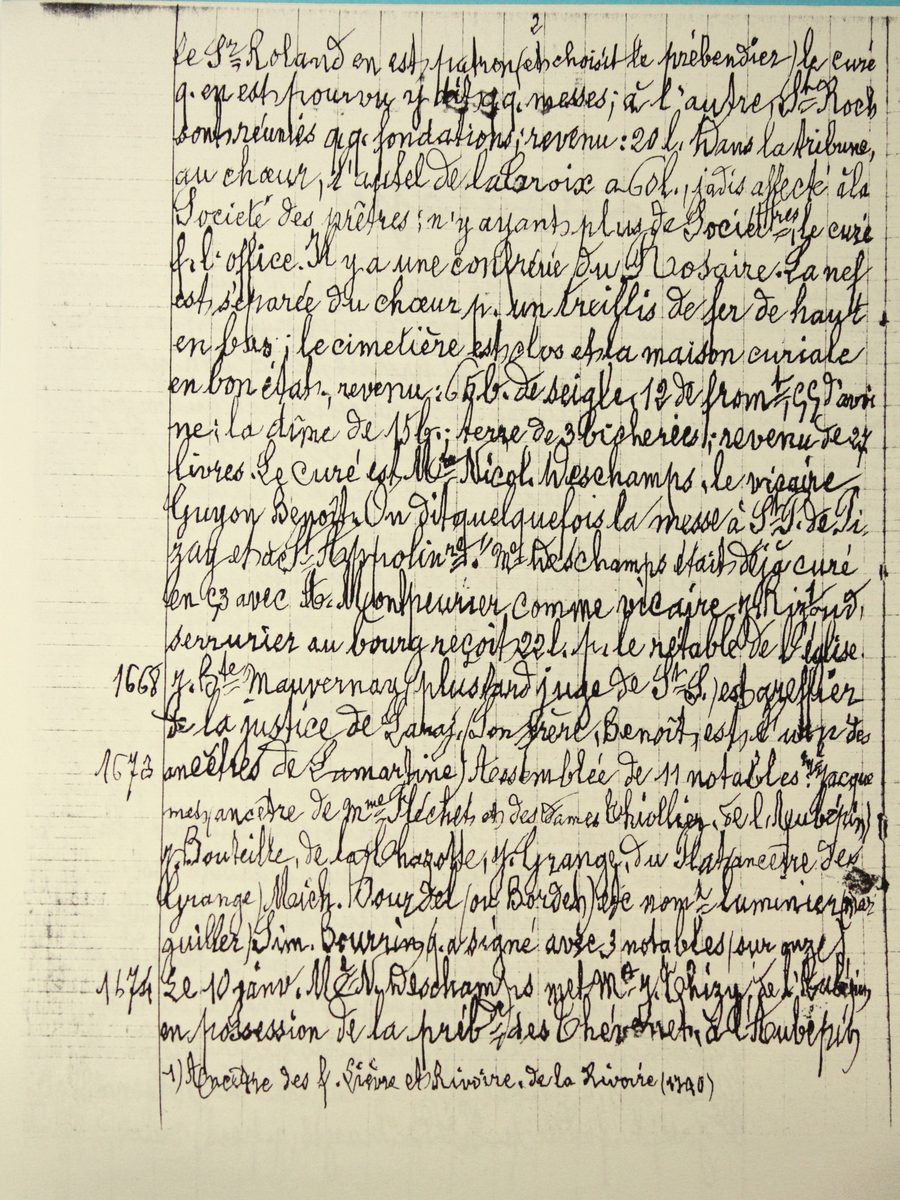 2
le Sr Roland en est patron (et choisit le prébendier) le curé
q. en est pourvu y dit qq. messes; à l'autre, St Roch
sont réuniés qq. fondations; revenu: 20 l. Dans la tribune,
au chœur, l'autel de la Croix a 60 l., jadis affecté à la
Societé des prêtres; n'y ayant plus de Sociétres, le curé
f. l'office. Il y a une confrérie du Rosaire. La nef
est séparée du chœur p. un treillis de fer de haut
en bas; le cimetière est clos et la maison curiale
en bon état, revenu: 65 b. de seigle, 12 de fromt, 55 d'avoi
ne; la dîme de 15 b.; terre de 3 bicherées; revenu de 27
livres. Le Curé est Mre Nicol. Deschamps, le vicaire
Guyon Benoît. On dit quelquefois la messe à St J. de Pi-
zay et de St Appolinre. 1) Mr Deschamps était déjà curé
en 53 avec Montpeurier comme vicaire,
serrurier au bourg reçoit 22 l. p. le rétable de l'église.
1668 J. Bte Mauvernay (plus tard juge de St S.) est greffier
de la justice de Laraj. (Son frère, Benoît, est l'un des
1673 ancêtres de Lamartine) Assemblée de 11 notables: Jacque
mes, ancêtre de Mme Fléchet et des Dames Thiollier, de l'Aubépin)
J. Bouteille, de la Chazotte, J. Grange, du Plat (ancêtre des
Grange) Mich. Bourdel (ou Bordel) etc nomt luminier (mar
guiller) Sim. Bourrin, q. a signé avec 3 notables (sur onze)
1674 Le 10 janv. Mre N. Deschamps met Me J. Thizy, de l'Aubépin
en possession de la prébde des Thévenet, à l'Aubépin
1) Ancêtre des f. Lièvre et Rivoire, de la Rivoire (1740)